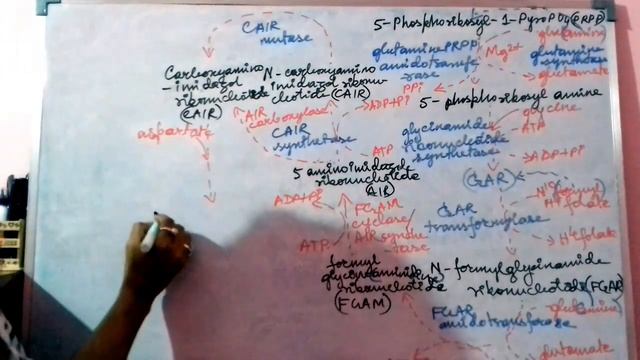 5-Phosphoribosyl-1-Pyro PO4 (PRPP)
glutamine
Mg2+
glutamine PRPP
amidotransfe
rase
glutamate
PPi
5-phosphoribosyl amine
glycine
ATP
glycinamide
ribonucleotide
synthetase
ADP+Pi
GAR
N10 formyl
H4 folate
GAR
transformylase
H4 folate
N-formylglycinamide
ribonucleotide (FGAR)
FGAR
amidotransferase
glutamine
glutamate
formyl
glycinamidine
ribonucleotide
(FGAM)
FGAM
cyclase/
AIR synthe
tase
ATP
ADP+Pi
5 aminoimidazole
ribonucleotide
(AIR)
ATP
ADP+Pi
CAIR
synthetase
AIR
carboxylase
N-carboxyamino
imidazole ribonu
cleotide (CAIR)
CAIR
mutase
Carboxyamino
-imidazole
ribonucleotide
(CAIR)
aspartate